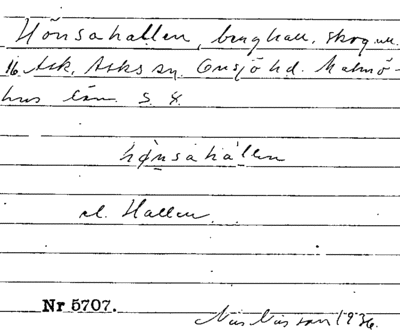 Hönsahallen, berghall, skog m.
16 Ask, Asks sn. Onsjö hd. Malmö-
hus län. S. 4.
hønsahàllen
el. Hallen.
Nr 5707.
Nils Nilsson 1936.